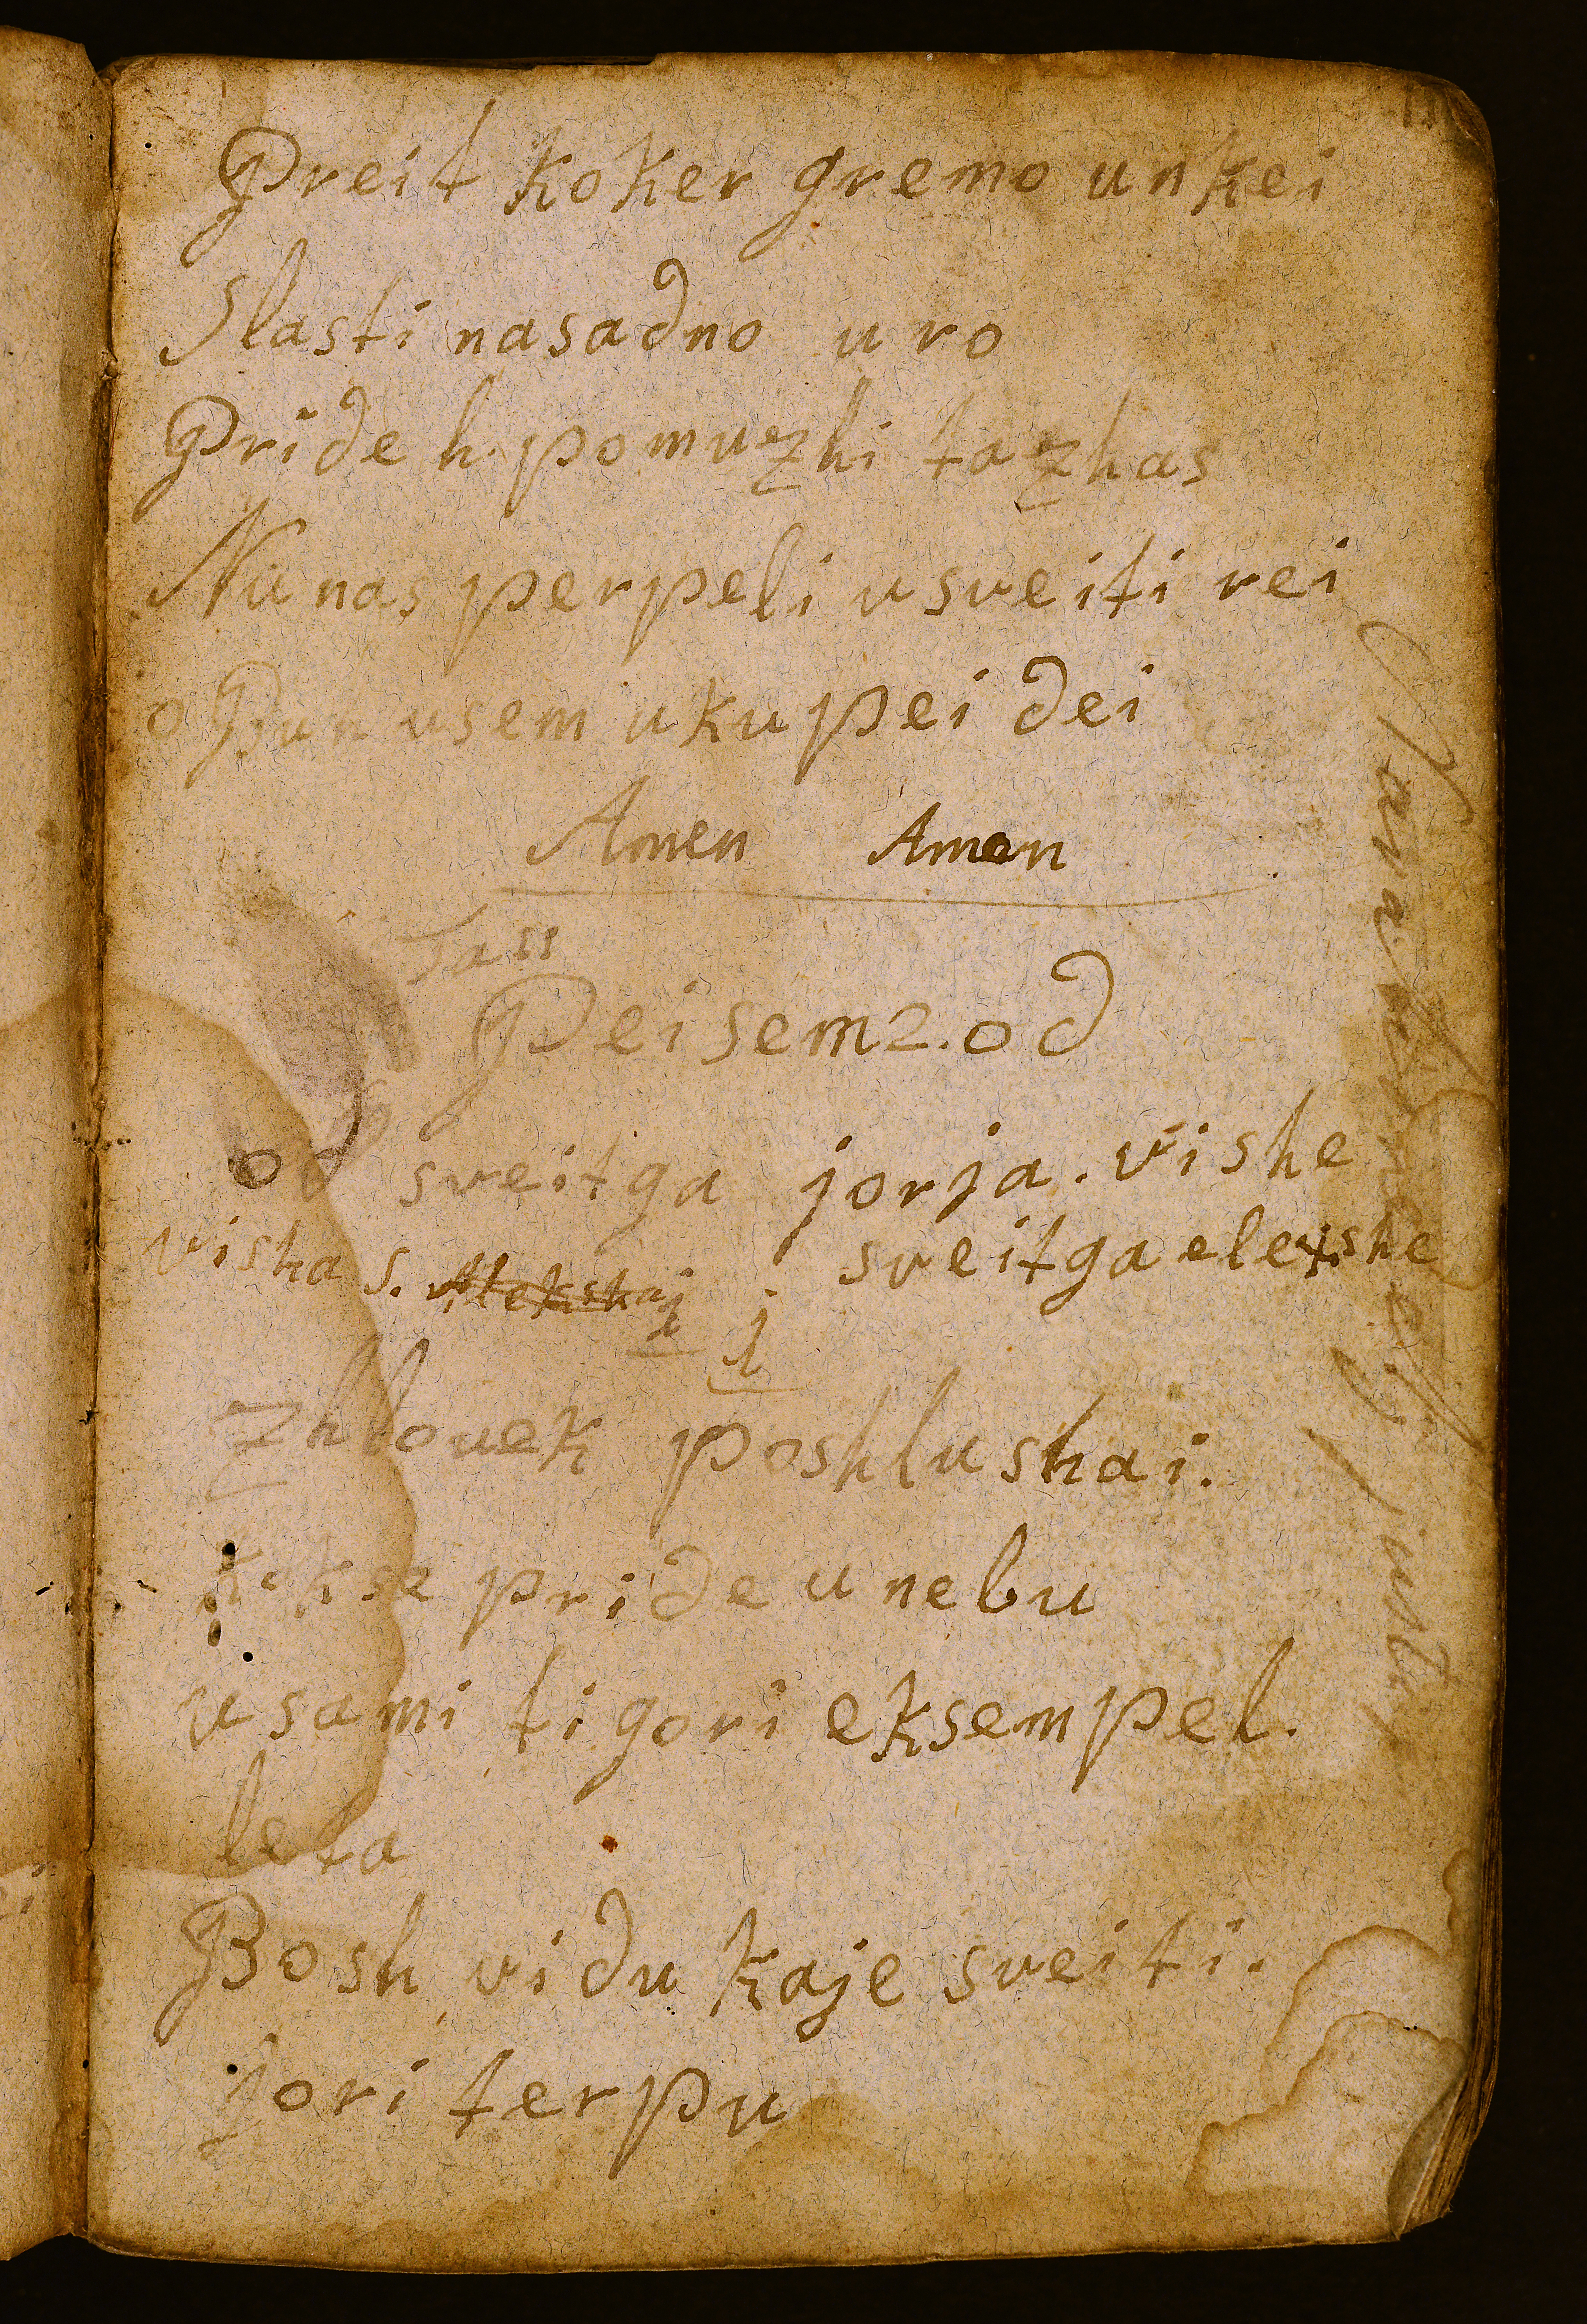 Preit koker gremo unkei
Slasti nasadno uro
Pride h. pomuzhi ta zhas
Nu nas perpeli u sveiti rei
o Bun usem ukupei dei
Amen Amen
Tass
Peisem 2. od
od sveitga jorja. vishe
visha s. Alekshaj sveitga elekshe
j j
zhlouek poshlushai.
kekse pride u nebu
u sami ti gori eksempel.
leta
Bosh vidu kaje sveiti.
jori terpu